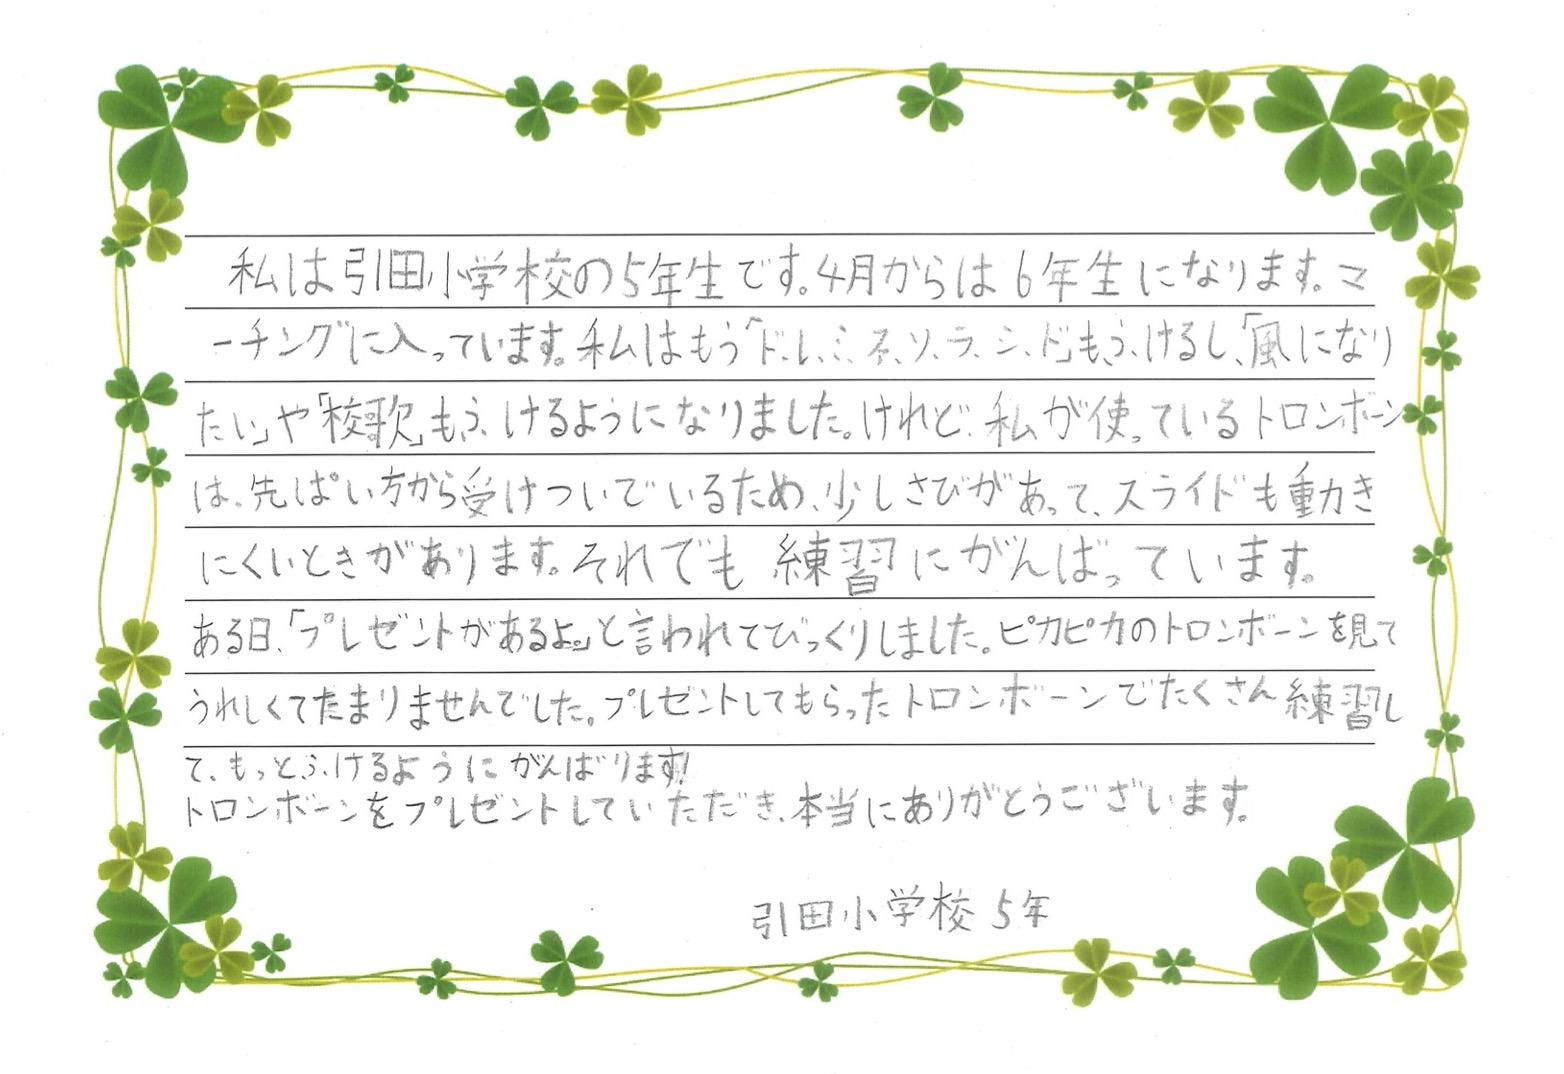 私は引田小学校の5年生です。4月からは6年生になります。マ
ーチングに入っています。私はもう「ド、レ、ミ、ネ、ソ、ラ、シ、ド」もふけるし、「風になり
たい」や「校歌」もふけるようになりました。けれど、私が使っているトロンボーン
は、先ぱい方から受けついでいるため、少しさびがあって、スライドも動き
にくいときがあります。それでも練習にがんばっています。
ある日、「プレゼントがあるよ。」と言われてびっくりしました。ピカピカのトロンボーンを見て
うれしくてたまりませんでした。プレゼントしてもらったトロンボーンでたくさん練習し
て、もっとふけるようにがんばります!
トロンボーンをプレゼントしていただき、本当にありがとうございます。
引田小学校 5年